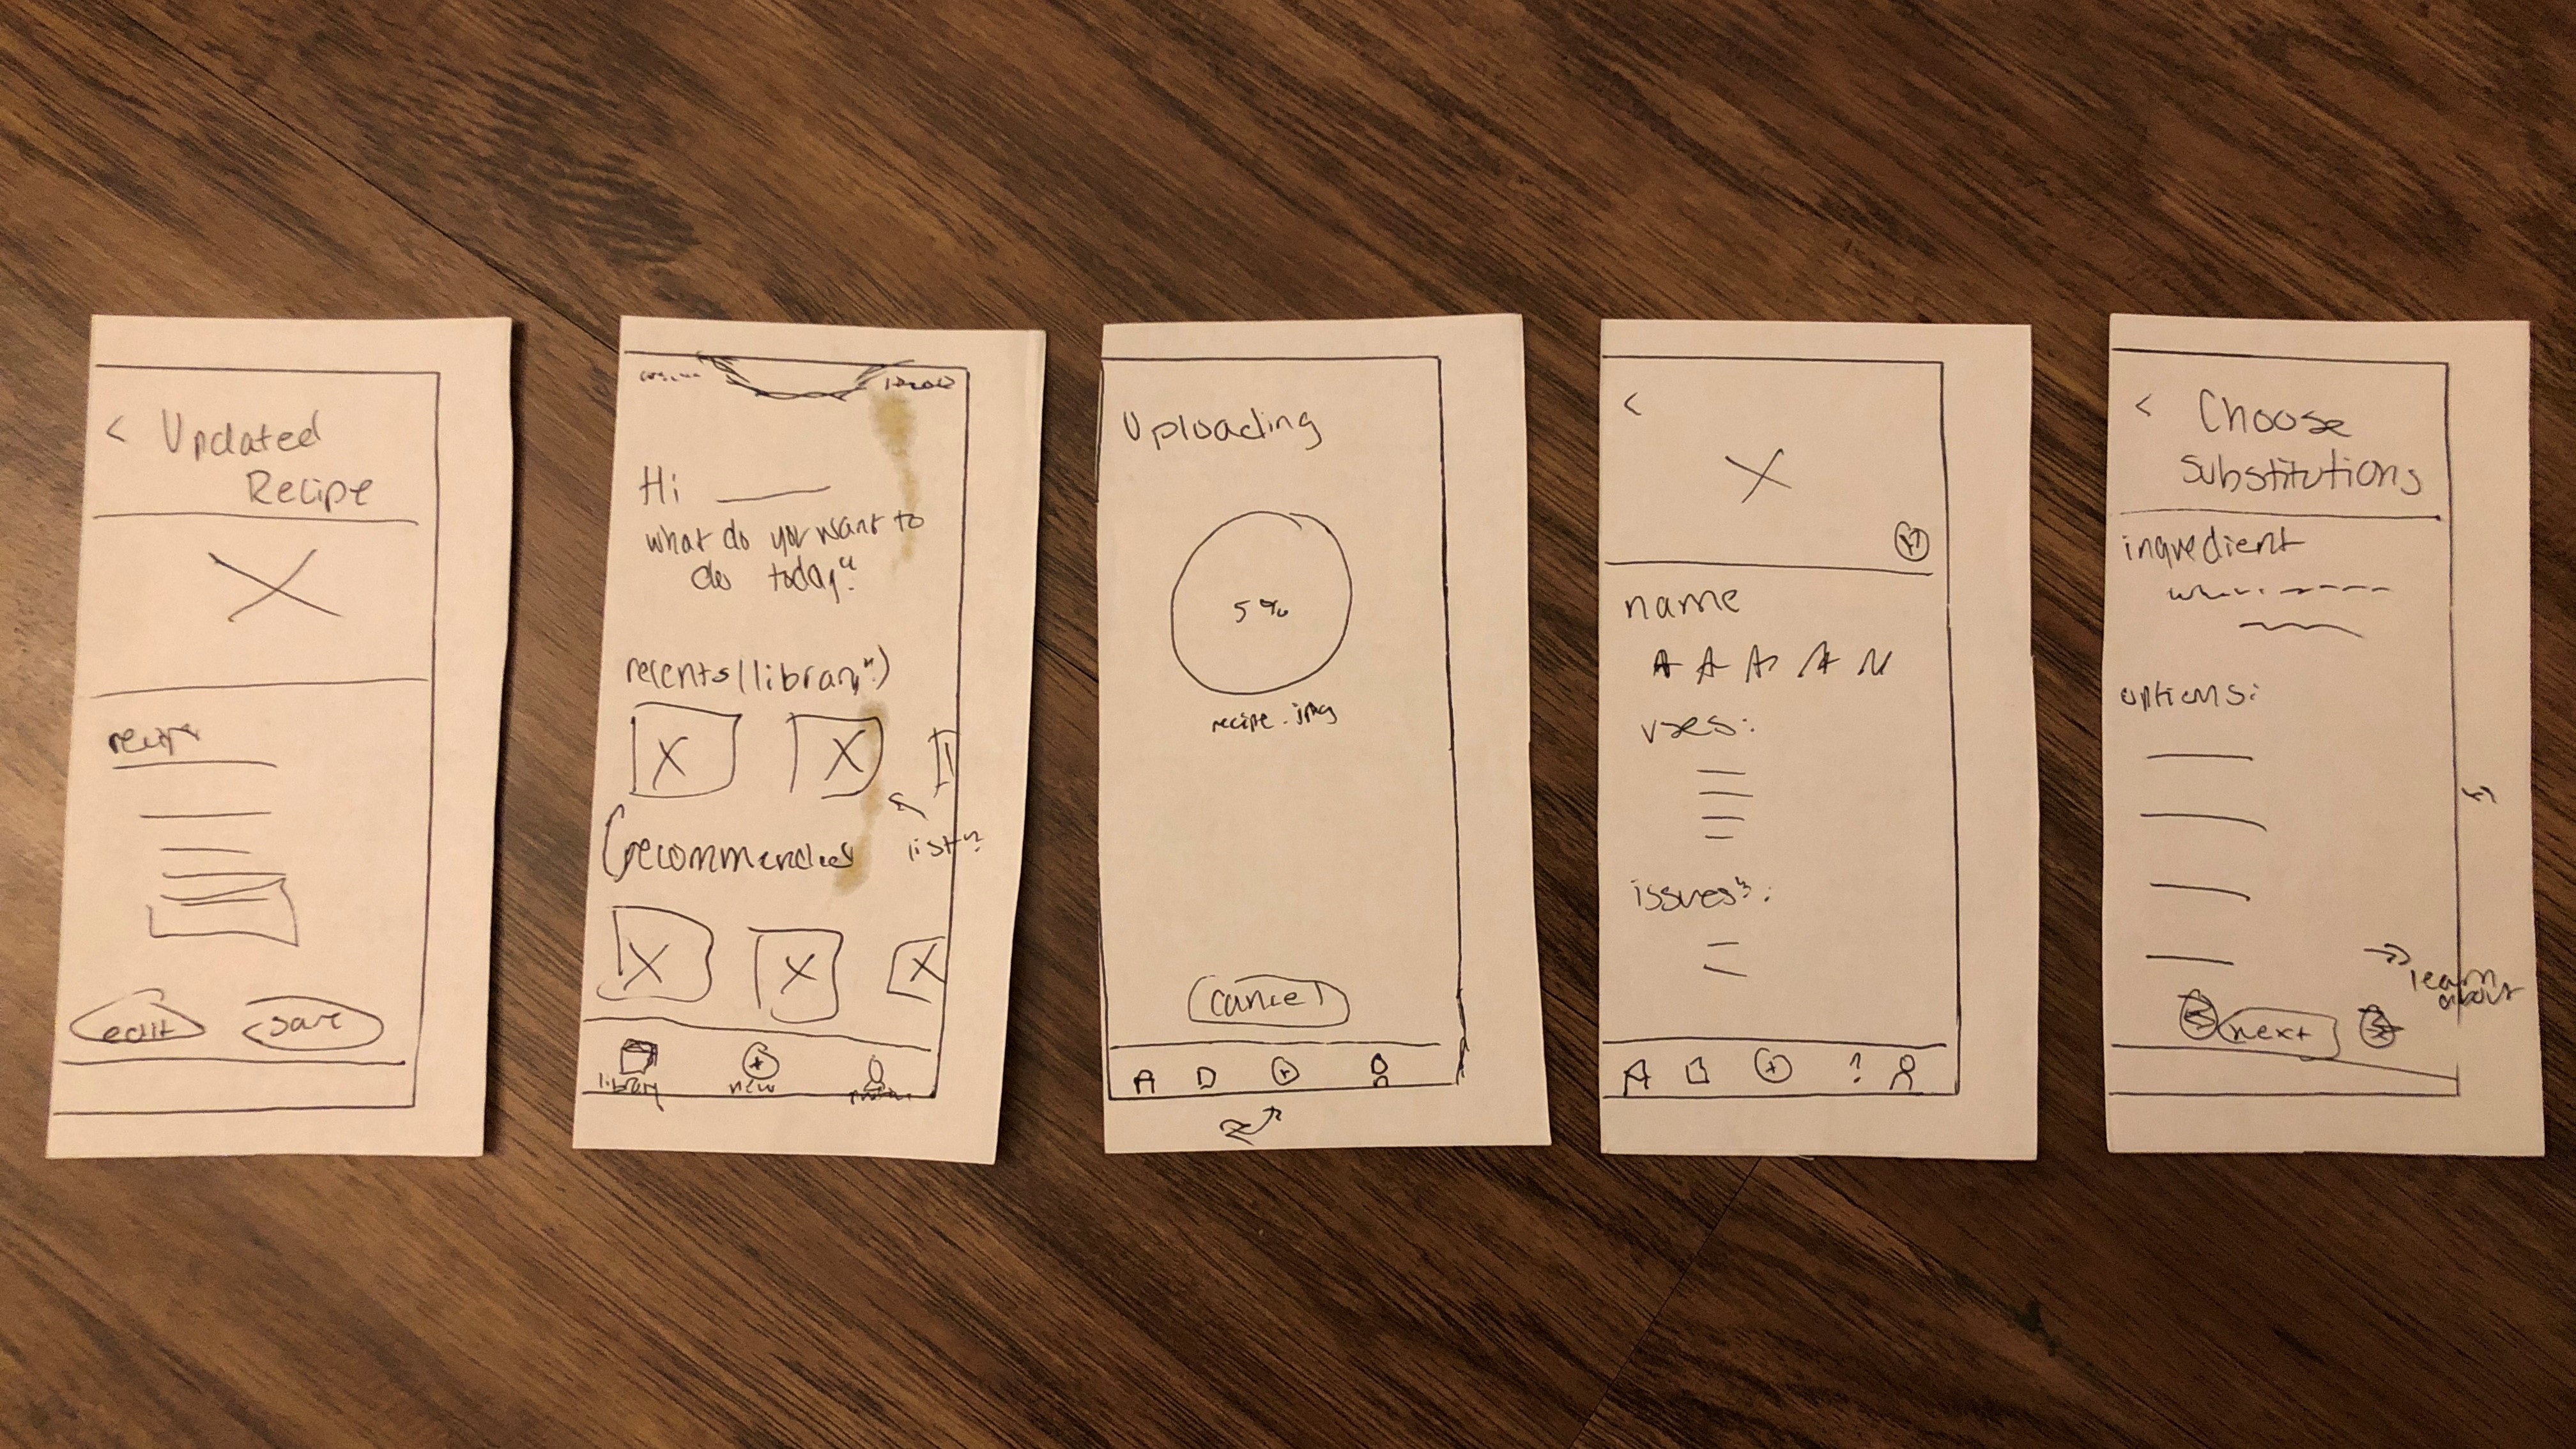 < Updated
Recipe
edit
save
Hi
what do you want to
do today?
recents (library?)
list?
(recommended
library
new
Uploading
5%
recipe.jpg
cancel
<
name
uses:
issues?:
?
< Choose
Substitutions
ingredient
options:
→ learn
about
next